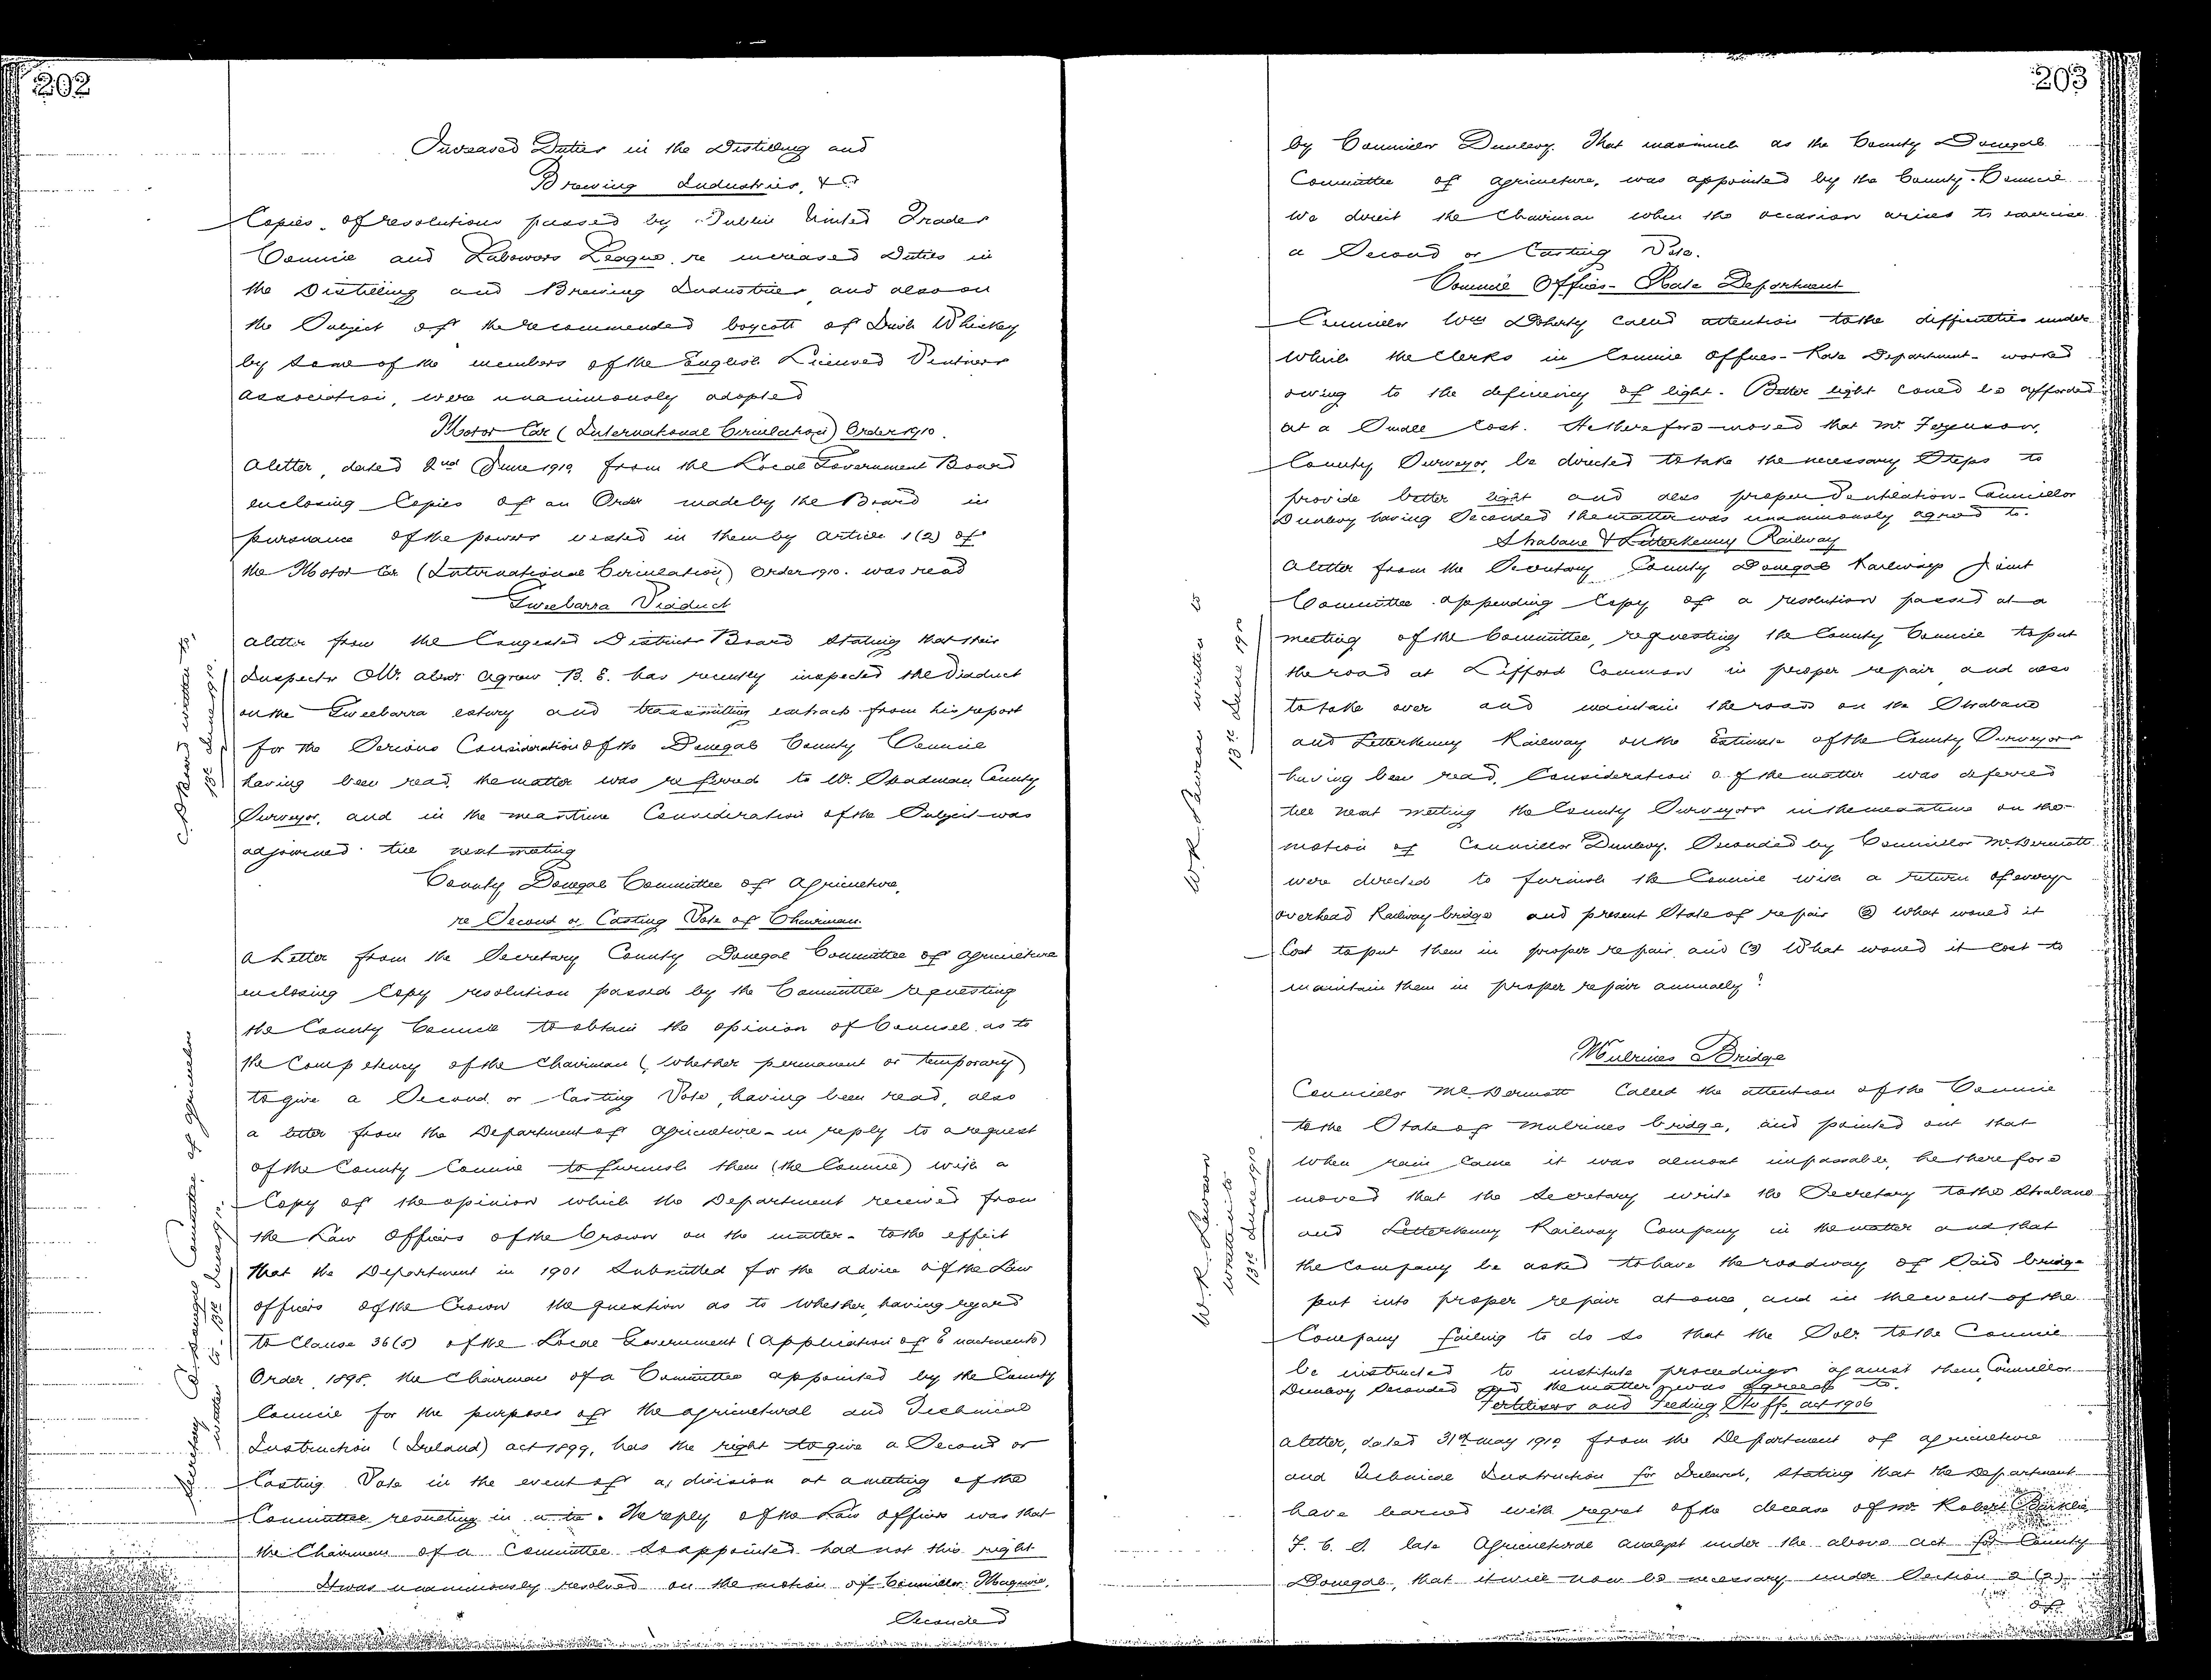 202
Increased Duties in the Distilling and
Brewing Industries, &c
Copies of resolutions passed by Dublin United Trades
Council and Labourers League re increased Duties in
the Distilling and Brewing Industries and also on
the Subject of the recommended boycott of Irish Whiskey
by some of the members of the English Licensed Vintners
Association, were unanimously adopted
Motor Car (International Circulation) Order 1910.
A letter, dated 2nd June 1910 from the Local Government Board
enclosing Copies of an Order made by the Board in
pursuance of the powers vested in them by Article 1(2) of
the Motor Car (International Circulation) Order 1910. was read
Gweebarra Viaduct
A letter from the Congested Districts Board stating that their
Inspector Mr. Alex Agnew B.E. has recently inspected the Viaduct
on the Gweebarra estuary and transmitting extract from his report
for the Serious Consideration of the Donegal County Council
having been read, the matter was referred to W. Steadman County
Surveyor, and in the meantime Consideration of the Subject was
adjourned till next meeting
written to,
13th June 1910.
County Donegal Committee of Agriculture,
re Second or Casting Vote of Chairman.
A Letter from the Secretary County Donegal Committee of Agriculture
enclosing Copy resolution passed by the Committee requesting
the County Council to obtain the opinion of Counsel as to
the Competency of the Chairman (whether permanent or temporary)
to give a Second or Casting Vote, having been read, also
a letter from the Department of Agriculture - in reply to a request
of the County Council to furnish them (the Council) with a
Copy of the opinion which the Department received from
the Law Officers of the Crown on the matter - to the effect
that the Department in 1901 Submitted for the advice of the Law
officers of the Crown the question as to whether, having regard
to Clause 36(5) of the Local Government (Application of Enactments)
Order, 1898, the Chairman of a Committee appointed by the County
Council for the purposes of the Agricultural and Technical
Instruction (Ireland) Act 1899, has the right to give a Second or
Casting Vote in the event of a division at a meeting of the
Committee resulting in a tie. The reply of the Law officers was that
the Chairman of a Committee so appointed had not this right
It was unanimously resolved on the motion of Councillor Maguire,
Seconded
Secretary Co Donegal Committee of Agriculture
written to - 13th June 1910.
203
by Councillor Dunlevy. That inasmuch as the County Donegal
Committee of Agriculture, was appointed by the County Council
we direct the Chairman when the occasion arises to exercise
a Second or Casting Vote.
Council Offices - Rate Department
Councillor Wm Doherty called attention to the difficulties under
which the Clerks in Council Offices - Rate Department - worked
owing to the deficiency of light. Better light could be afforded
at a Small Cost. He therefore moved that Mr Ferguson,
County Surveyor, be directed to take the necessary Steps to
provide better light and also proper Ventilation - Councillor
Dunlevy having Seconded the matter was unanimously agreed to.
Strabane & Letterkenny Railway
A letter from the Secretary County Donegal Railways Joint
Committee appending Copy of a resolution passed at a
meeting of the Committee, requesting the County Council to put
the road at Lifford Common in proper repair and also
to take over and maintain the roads on the Strabane
and Letterkenny Railway on the Estimate of the County Surveyors
having been read, Consideration of the matter was deferred
till next meeting the County Surveyors in the meantime on the
motion of Councillor Dunlevy. Seconded by Councillor McDermott
were directed to furnish the Council with a return of every
overhead Railway bridge and present State of repair (2) What would it
Cost to put them in proper repair and (3) What would it Cost to
maintain them in proper repair annually?
W.R. Lawson written to
13th June 1910
Mulrines Bridge
Councillor McDermott Called the attention of the Council
to the State of Mulrines bridge, and pointed out that
when rain Came it was almost impassable, he therefore
moved that the Secretary write the Secretary to the Strabane
and Letterkenny Railway Company in the matter and that
the Company be asked to have the roadway of Said bridge
put into proper repair at once, and in the event of the
Company failing to do so that the Solr to the Council
be instructed to institute proceedings against them, Councillor
Dunlevy Seconded and the matter was agreed to.
W.R. Lawson
written to
13th June 1910
Fertilisers and Feeding Stuffs Act 1906
A letter, dated 31st May 1910 from the Department of Agriculture
and Technical Instruction for Ireland, stating that the Department
have learned with regret of the decease of Mr Robert Barklie
F.C.S. late Agricultural Analyst under the above Act for County
Donegal, that it will now be necessary under Section 2 (2)
of